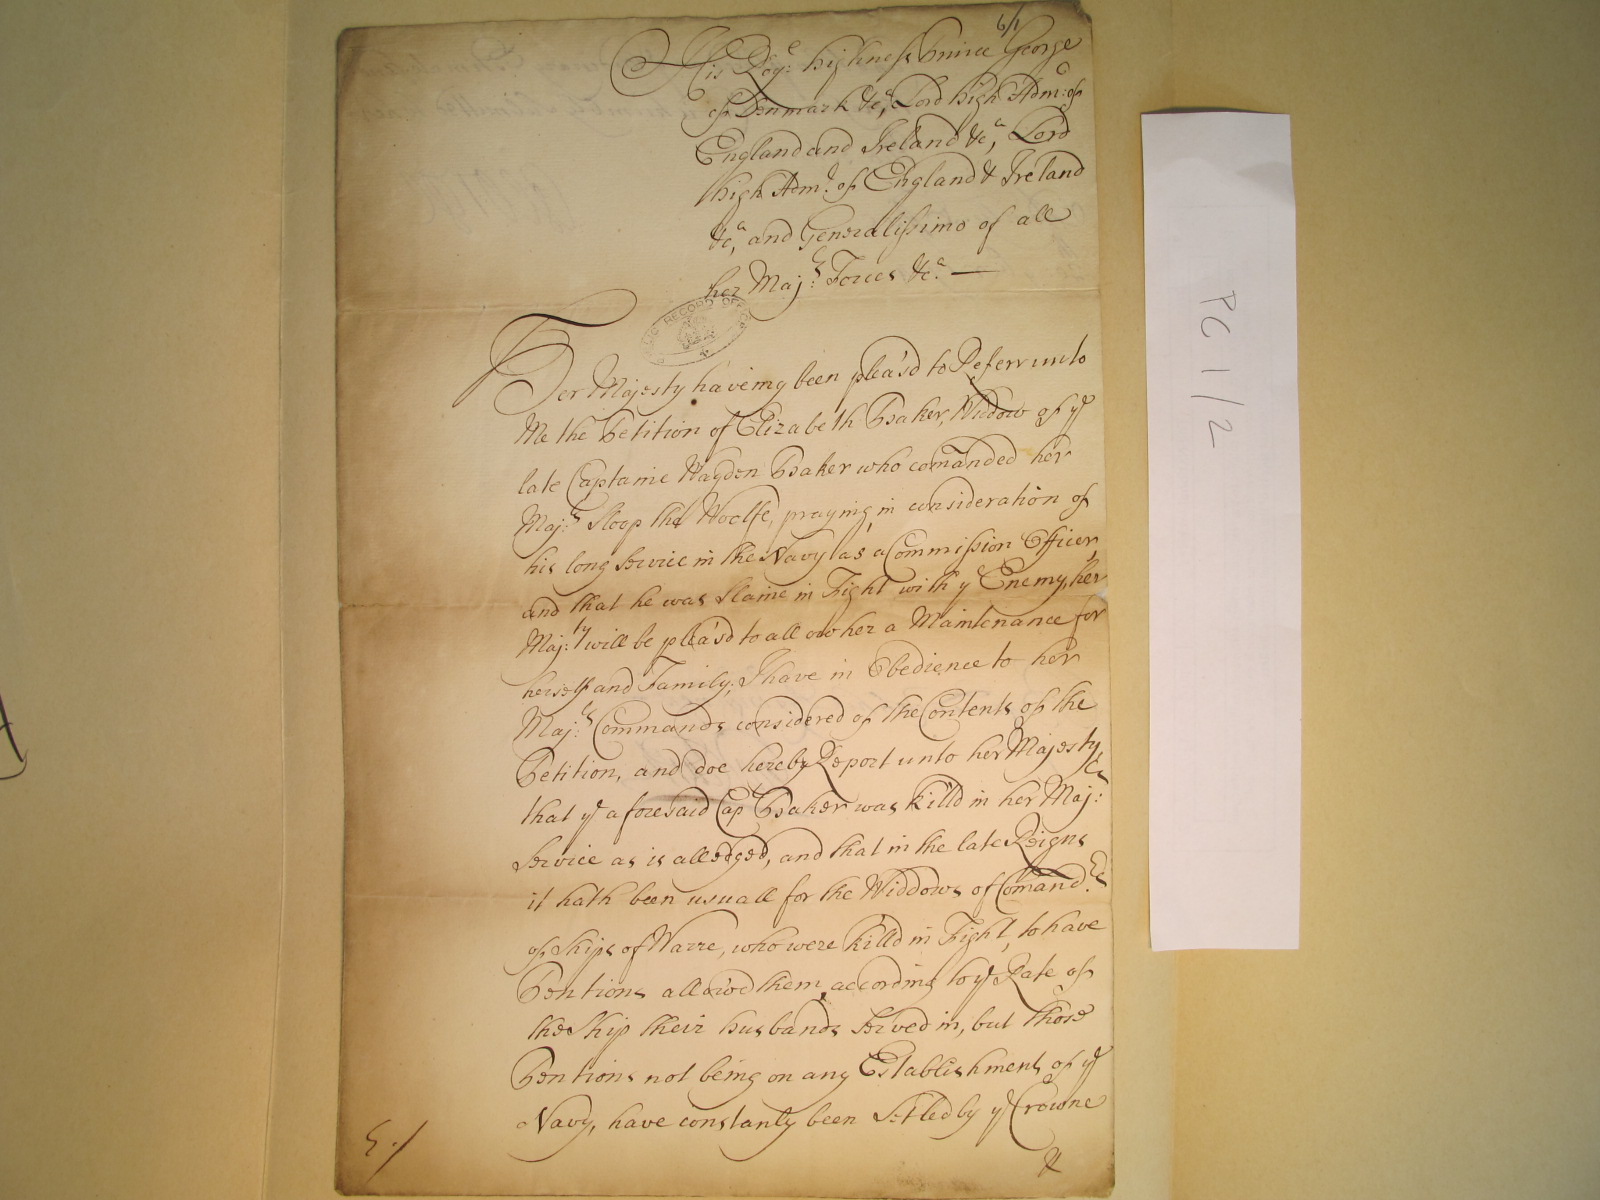 6/1
His Roy:ll highness Prince George
of Denmark &ca, Lord high Adm:ll of
England and Ireland &ca, Lord
high Adm:ll of England & Ireland
&ca, and Generalissimo of all
her Maj:ts Forces &ca. —
PUBLIC RECORD OFFICE
Her Majesty haveing been pleas'd to Referr unto
Me the Petition of Elizabeth Baker, Widdow of ye
late Captaine Hayden Baker who comanded her
Maj:ts Sloop the Woolfe, praying, in consideration of
his long Service in the Navy as a Commission Officer,
and that he was Slaine in Fight with ye Enemy, her
Maj:ty will be pleas'd to allow her a Maintenance for
herself and Family; I have in Obedience to her
Maj:ts Commands considered of the Contents of the
Petition, and doe hereby Report unto her Majesty,
that ye aforesaid Capt Baker was killd in her Maj:ts
Service as is alledged, and that in the late Reigns
it hath been usuall for the Widdows of Comand:rs
of Ships of Warre, who were killd in Fight, to have
Pentions allow'd them, according to ye Rate of
the Ship their husbands Served in, but those
Pentions not being on any Establishment of ye
Navy, have constantly been Setled by ye Crowne
&
PC 1/2